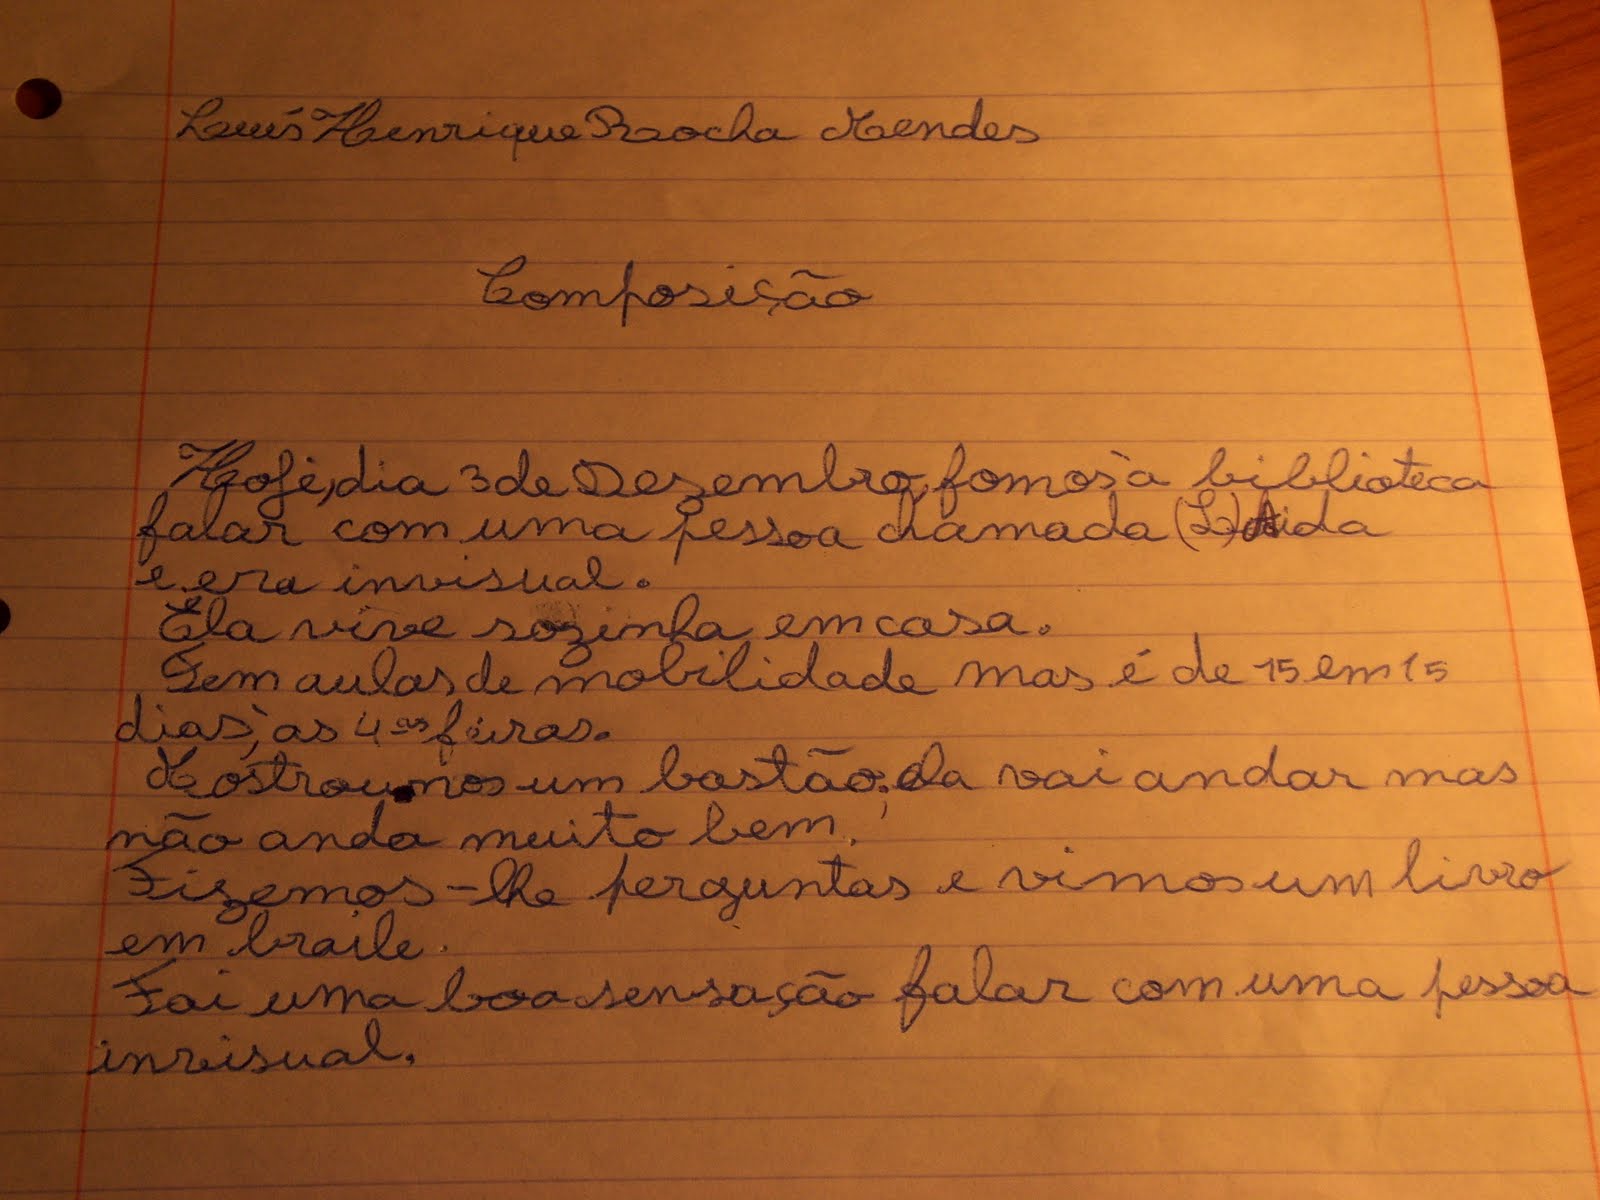 Luís Henrique Rocha Mendes
Composição
Hoje, dia 3 de Dezembro, fomos à biblioteca
falar com uma pessoa chamada (L) Aida
e era invisual.
Ela vive sozinha em casa.
Tem aulas de mobilidade mas é de 15 em 15
dias, às 4as feiras.
Mostrou-nos um bastão, ela vai andar mas
não anda muito bem.
Fizemos-lhe perguntas e vimos um livro
em braile.
Foi uma boa sensação falar com uma pessoa
invisual.